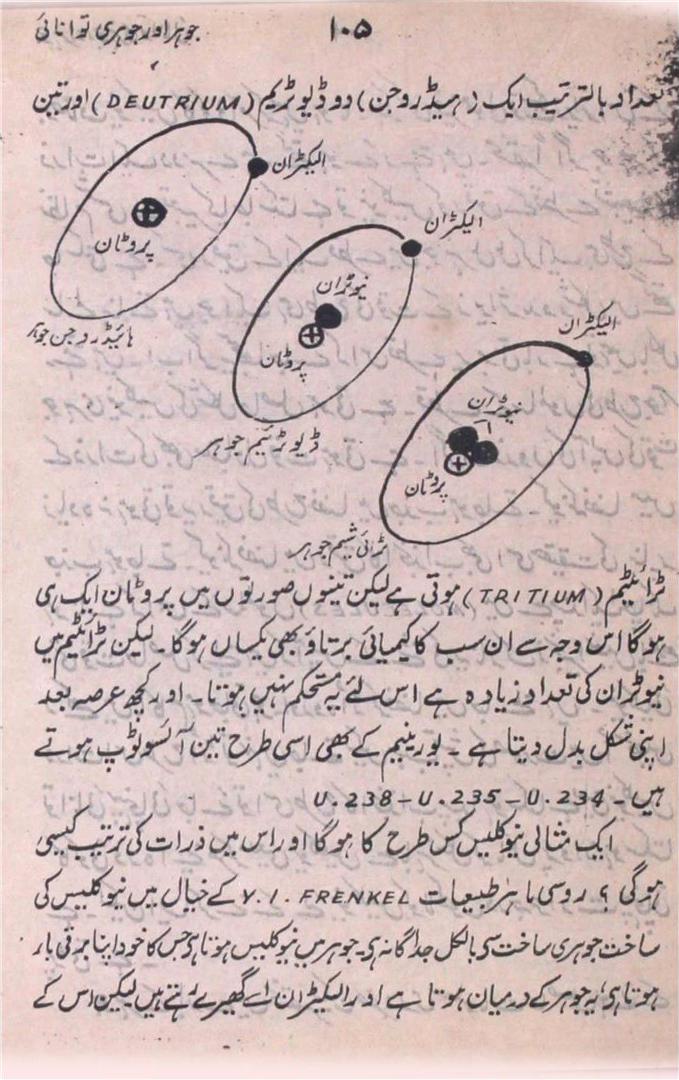 ۱۰۵
جوہر اور جوہری توانائی
تعداد بالترتیب ایک (ہیڈروجن) دو ڈیوٹریم (DEUTRIUM) اور تین
الیکٹران
پروٹان
ہائیڈروجن جوہر
الیکٹران
نیوٹران
پروٹان
ڈیوٹرئیم جوہر
الیکٹران
نیوٹران
پروٹان
ٹرائی شیم جوہر
ٹرائیٹیم (TRITIUM) ہوتی ہے لیکن تینوں صورتوں میں پروٹان ایک ہی
ہوگا اس وجہ سے ان سب کا کیمیائی برتاؤ بھی یکساں ہوگا۔ لیکن ٹرائیٹیم میں
نیوٹران کی تعداد زیادہ ہے اس لئے یہ مستحکم نہیں ہوتا۔ اور کچھ عرصہ بعد
اپنی شکل بدل دیتا ہے ۔ یورینیم کے بھی اسی طرح تین آئسوٹوپ ہوتے
ہیں ۔ U.238 – U.235 – U.234
ایک مثالی نیوکلیس کس طرح کا ہوگا اور اس میں ذرات کی ترتیب کیسی
ہوگی ؟ روسی ماہر طبیعات Y.I. FRENKEL کے خیال میں نیوکلیس کی
ساخت جوہری ساخت سی بالکل جداگانہ ہی جوہر میں نیوکلیس ہوتا ہی جس کا خود اپنا برقی بار
ہوتا ہی یہ جوہر کے درمیان ہوتا ہے اور الیکٹران اسے گھیرے رہتے ہیں لیکن اس کے